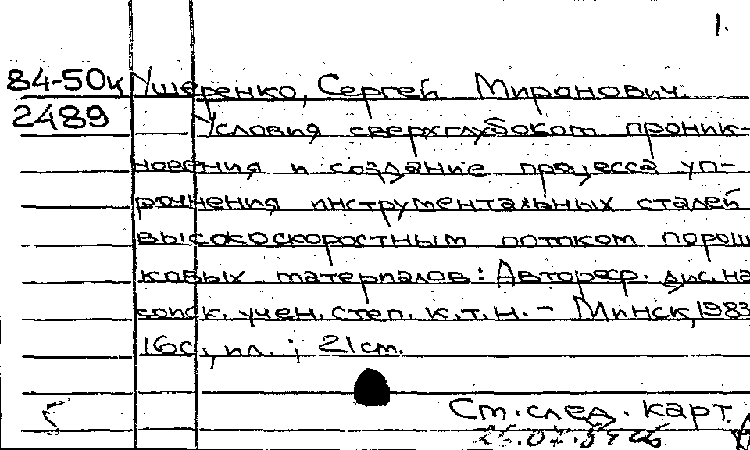 1.
84-50к Ушеренко, Сергей Миронович.
2489 Условия сверхглубоком проник-
новения и создание процесса уп-
рочнения инструментальных сталей
высокоскоростным потоком порош
ковых материалов: Автореф. дис. на
соиск. учен. степ. к.т.н. - Минск, 1983
16с., ил. ; 21 см.
См. след. карт.